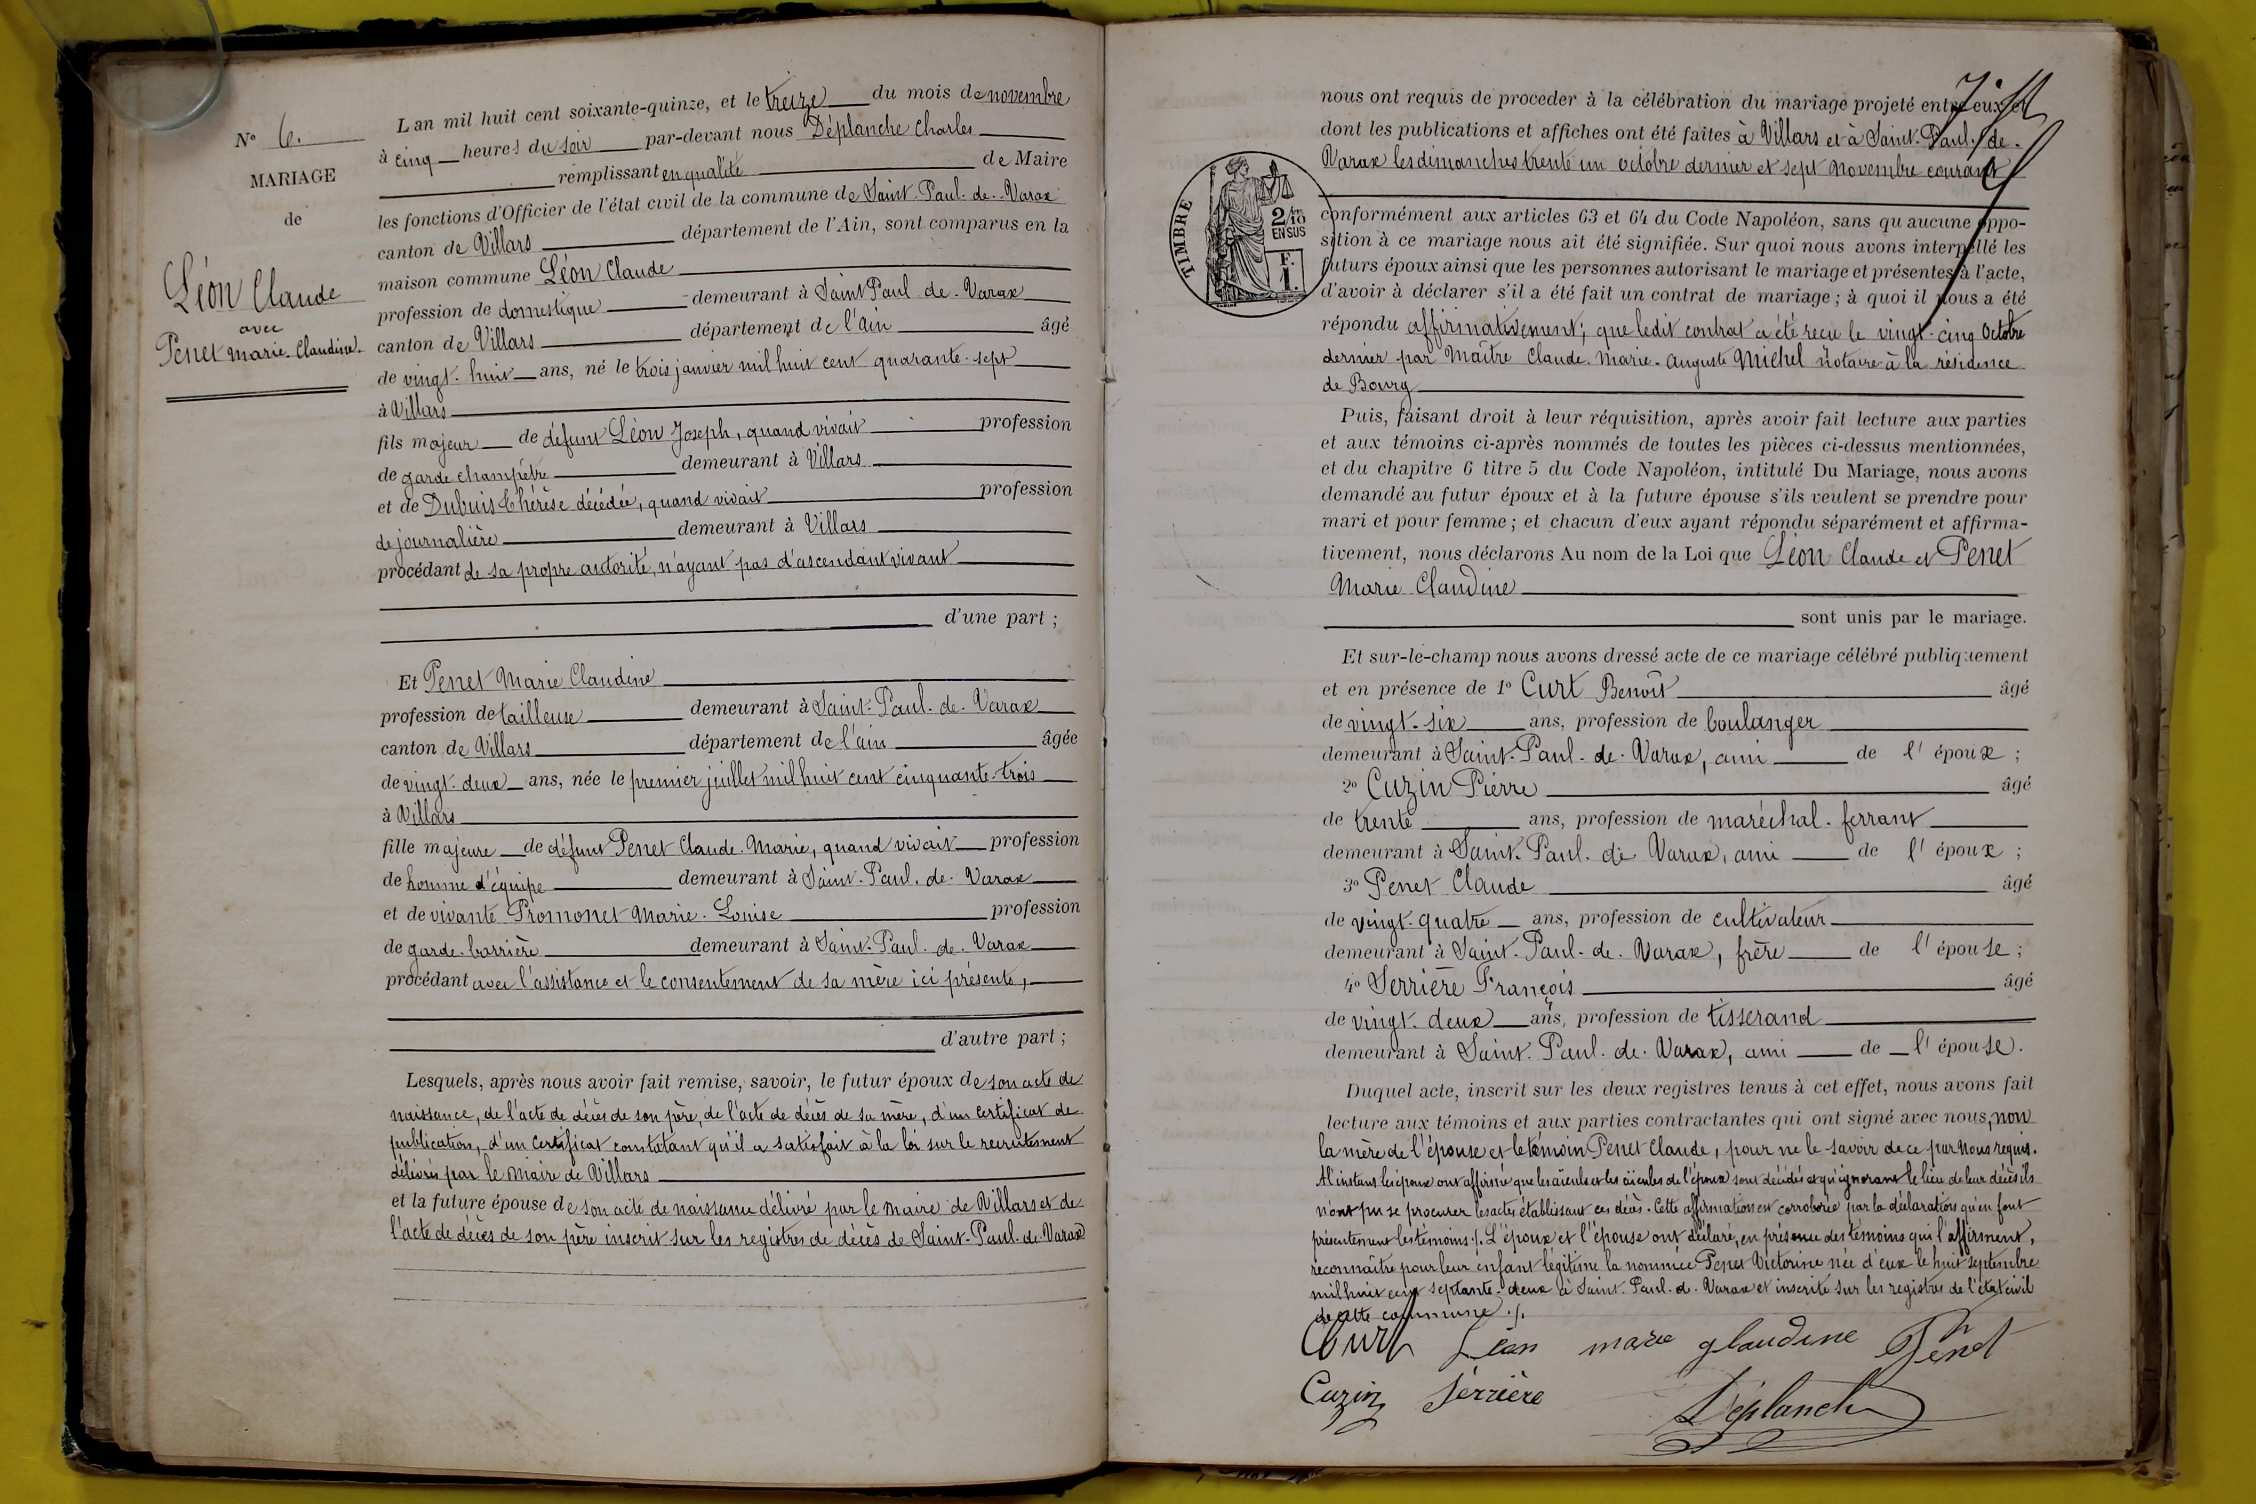 N° 6.
MARIAGE
de
Léon Claude
avec
Penet marie-Claudine.
L an mil huit cent soixante-quinze, et le treize du mois de novembre
à cinq heures du soir par-devant nous Déplanche Charles
remplissant en qualité de Maire
les fonctions d'Officier de l'état civil de la commune de Saint-Paul-de-Varax
canton de Villars département de l'Ain, sont comparus en la
maison commune Léon Claude
profession de domestique demeurant à Saint Paul-de-Varax
canton de Villars département de l'ain âgé
de vingt-huit ans, né le trois janvier mil huit cent quarante-sept
à Villars
fils majeur de défunt Léon Joseph, quand vivait profession
de garde champêtre demeurant à Villars
et de Dubuis Thérèse décédée, quand vivait profession
de journalière demeurant à Villars
procédant de sa propre autorité, n'ayant pas d'ascendant vivant
d'une part ;
Et Penet Marie Claudine
profession de tailleuse demeurant à Saint-Paul-de-Varax
canton de Villars département de l'ain âgée
de vingt-deux ans, née le premier juillet mil huit cent cinquante-trois
à Villars
fille majeure de défunt Penet Claude-Marie, quand vivait profession
de homme d'équipe demeurant à Saint-Paul-de-Varax
et de vivante Promonet Marie-Louise profession
de garde-barrière demeurant à Saint-Paul-de-Varax
procédant avec l'assistance et le consentement de sa mère ici présente,
d'autre part ;
Lesquels, après nous avoir fait remise, savoir, le futur époux de son acte de
naissance, de l'acte de décès de son père, de l'acte de décès de sa mère, d'un certificat de
publication, d'un certificat constatant qu'il a satisfait à la loi sur le recrutement
délivrés par le Maire de Villars
et la future épouse de son acte de naissance délivré par le Maire de Villars et de
l'acte de décès de son père inscrit sur les registres de décès de Saint-Paul-de-Varax
nous ont requis de proceder à la célébration du mariage projeté entre eux et
dont les publications et affiches ont été faites à Villars et à Saint-Paul-de-
Varax les dimanches trente un octobre dernier et sept novembre courant
TIMBRE
2/10
EN SUS
F.
1.
conformément aux articles 63 et 64 du Code Napoléon, sans qu aucune oppo-
sition à ce mariage nous ait été signifiée. Sur quoi nous avons interpellé les
futurs époux ainsi que les personnes autorisant le mariage et présentes à l'acte,
d'avoir à déclarer s'il a été fait un contrat de mariage ; à quoi il nous a été
répondu affirmativement, que ledit contrat a été reçu le vingt-cinq Octobre
dernier par Maître Claude-Marie-Auguste Michel Notaire à la résidence
de Bourg
Puis, faisant droit à leur réquisition, après avoir fait lecture aux parties
et aux témoins ci-après nommés de toutes les pièces ci-dessus mentionnées,
et du chapitre 6 titre 5 du Code Napoléon, intitulé Du Mariage, nous avons
demandé au futur époux et à la future épouse s'ils veulent se prendre pour
mari et pour femme ; et chacun d'eux ayant répondu séparément et affirma-
tivement, nous déclarons Au nom de la Loi que Léon Claude et Penet
Marie Claudine
sont unis par le mariage.
Et sur-le-champ nous avons dressé acte de ce mariage célébré publiquement
et en présence de 1° Curt Benoît âgé
de vingt-six ans, profession de boulanger
demeurant à Saint-Paul-de-Varax, ami de l'époux ;
2° Cuzin Pierre âgé
de trente ans, profession de maréchal-ferrant
demeurant à Saint-Paul-de Varax, ami de l'époux ;
3° Penet Claude âgé
de vingt-quatre ans, profession de cultivateur
demeurant à Saint-Paul-de-Varax, frère de l'épouse ;
4° Serrière François âgé
de vingt-deux ans, profession de tisserand
demeurant à Saint-Paul-de-Varax, ami de l'épouse.
Duquel acte, inscrit sur les deux registres tenus à cet effet, nous avons fait
lecture aux témoins et aux parties contractantes qui ont signé avec nous, non
la mère de l'épouse et le témoin Penet Claude, pour ne le savoir de ce par nous requis.
A l'instant les époux ont affirmé que les aïeuls et les aïeules de l'époux sont décédés et qu'ignorant le lieu de leur décès ils
n'ont pu se procurer les actes établissant ces décès. Cette affirmation est corroborée par la déclaration qu'en font
présentement les témoins./. L'époux et l'épouse ont déclaré, en présence des témoins qui l'affirment,
reconnaître pour leur enfant légitime la nommée Penet Victorine née d'eux le huit septembre
mil huit cent septante-deux à Saint-Paul-de-Varax et inscrite sur les registres de l'état civil
de cette commune./.
Curt Léon marie glaudine Penet
Cuzin Serrière
Déplanche